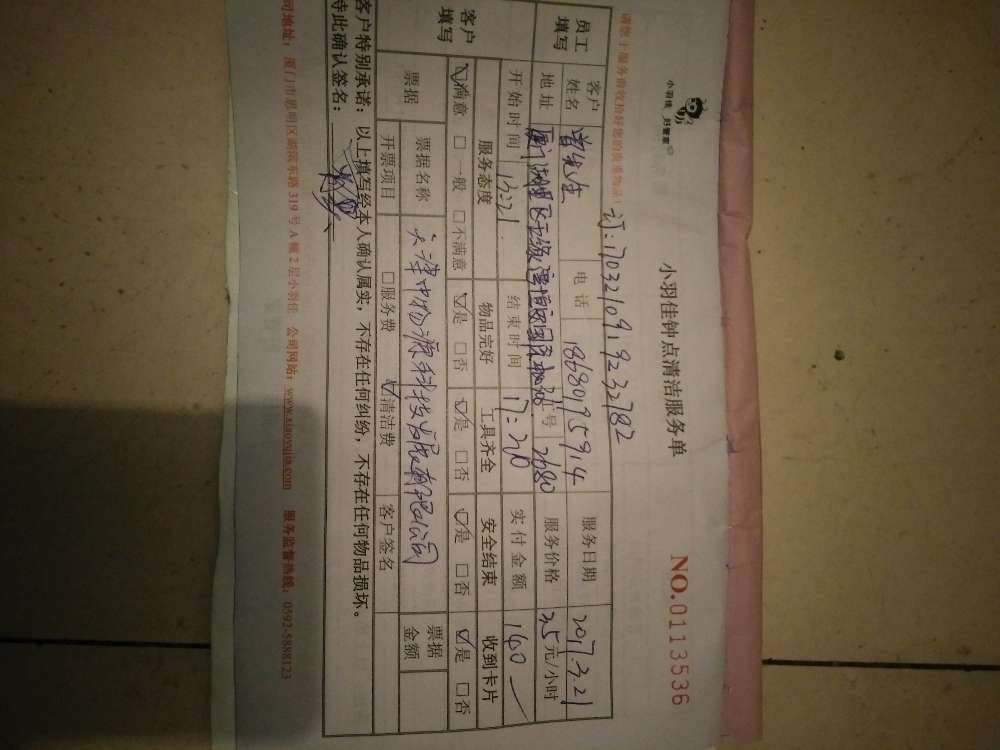 小羽佳 好管家
小羽佳钟点清洁服务单
NO.0113536
请您于服务前收拾好您的贵重物品!
订:1703210919232782
员工填写 客户姓名 曾先生 电话 18680195914 服务日期 2017.3.21
地址 号 2680 服务价格 35元/小时
开始时间 13:21 结束时间 17:20 实付金额 140
客户填写 服务态度 物品完好 工具齐全 安全结束 收到卡片
☑满意 □一般 □不满意 ☑是 □否 ☑是 □否 ☑是 □否 ☑是 □否
票据 票据名称 天津中物源科技发展有限公司 票据金额
开票项目 □服务费 ☑清洁费 客户签名
客户特别承诺:以上填写经本人确认属实,不存在任何纠纷,不存在任何物品损坏。
特此确认签名:
司地址:厦门市思明区湖滨东路319号A幢2层小羽佳 公司网站:www.xiaoyujia.com 服务监督热线:0592-5888123